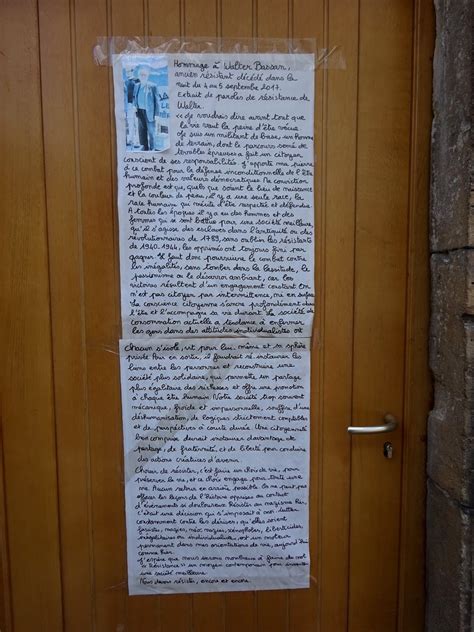 Hommage à Walter Bassan,
ancien résistant décédé dans la
nuit du 4 au 5 septembre 2017.
Extrait de paroles de résistance de
Walter.
« Je voudrais dire avant tout que
la vie vaut la peine d'être vécue
Je suis un militant de base, un homme
de terrain, dont le parcours semé de
terribles épreuves a fait un citoyen
conscient de ses responsabilités J'apporte ma pierre
à ce combat pour la défense inconditionnelle de l'être
humain et des valeurs démocratiques Ma conviction
profonde est que, quels que soient le lieu de naissance
et la couleur de peau, il y a une seule race, la
race humaine qui mérite d'être respectée et défendue
A toutes les époques il y a eu des hommes et des
femmes qui se sont battus pour une société meilleure,
qu'il s'agisse des esclaves dans l'antiquité ou des
révolutionnaires de 1789, sans oublier les résistants
de 1940.1944, les opprimés ont toujours fini par
gagner Il faut donc poursuivre le combat contre
les inégalités, sans tomber dans la lassitude, le
pessimisme ou le désarroi ambiant, car les
victoires résultent d'un engagement constant On
n'est pas citoyen par intermittence, ni en surface
La conscience citoyenne s'ancre profondément dans
l'être et l'accompagne sa vie durant La société de
consommation actuelle a tendance à enfermer
les gens dans des attitudes individualistes où
chacun s'isole, vit pour lui même et sa sphère
privée Pour en sortir, il faudrait ré instaurer les
liens entre les personnes et reconstruire une
société plus solidaire, qui permette un partage
plus égalitaire des richesses et offre une
à chaque être humain Notre société trop souvent
mécanique, froide et impersonnelle, souffre d'une
déshumanisation, de logiques strictement comptables
et de perspectives à courte durée Une citoyenneté
bien comprise devrait instaurer davantage de
partage, de fraternité, et de liberté pour conduire
des actions créatrices d'avenir.
Choisir de résister, c'est faire un choix de vie, pour
préserver la vie, et ce choix engage pour toute une
vie Aucun retour en arrière possible On ne peut pas
effacer les leçons de l'Histoire apprises au contact
d'événements si douloureux Résister au nazisme hier,
c'était une décision qui s'imposait à nous Lutter
constamment contre les dérives, qu'elles soient
fascistes, nazies, xénophobes, liberticides,
inégalitaires ou individualistes, est un moteur
permanent dans mes orientations de vie, aujourd'hui
comme hier.
J'espère que nous serons nombreux à faire du mot
« Résistance » un moyen contemporain pour inventer
une société meilleure.
Nous devons résister, encore et encore